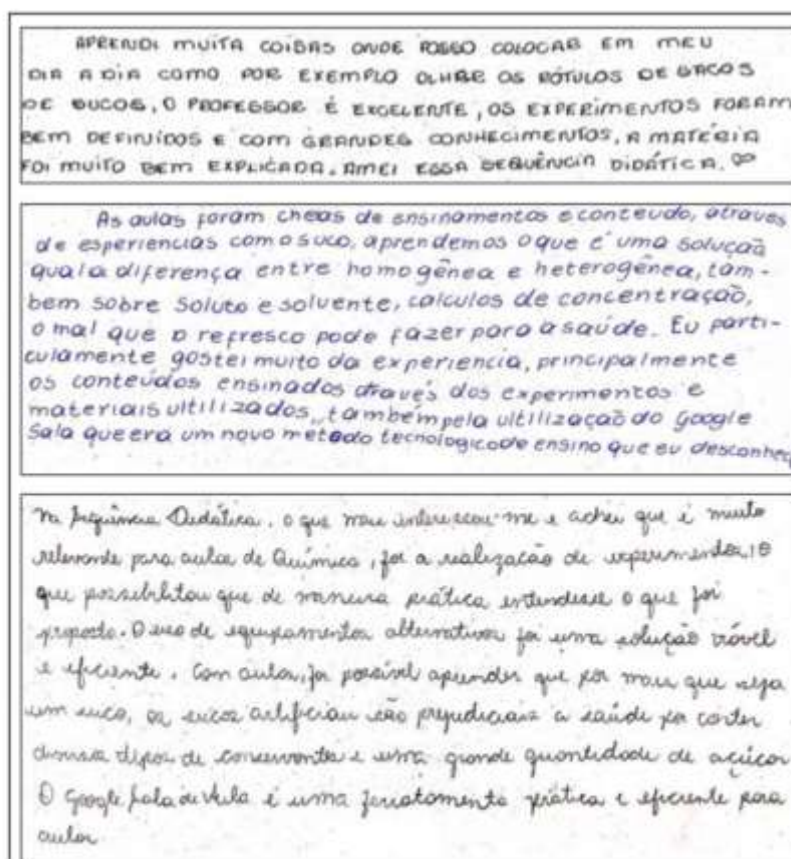 APRENDI MUITA COISAS ONDE POSSO COLOCAR EM MEU
DIA A DIA COMO POR EXEMPLO OLHAR OS RÓTULOS DE SACOS
DE SUCOS, O PROFESSOR É EXCELENTE, OS EXPERIMENTOS FORAM
BEM DEFINIDOS E COM GRANDES CONHECIMENTOS, A MATÉRIA
FOI MUITO BEM EXPLICADA. AMEI ESSA SEQUÊNCIA DIDÁTICA. ∞
As aulas foram cheas de ensinamentos e conteudo, atraves
de esperiencias como suco, aprendemos o que é uma solução
qual a diferença entre homogênea e heterogênea, tam-
bem sobre soluto e solvente, calculos de concentração,
o mal que o refresco pode fazer para a saúde. Eu parti-
culamente gostei muito da experiencia, principalmente
os conteúdos ensinados através dos experimentos e
materiais ultilizados, também pela ultilização do Google
Sala que era um novo metodo tecnologico de ensino que eu desconheç
Na Sequência Didática, o que mais interessou-me e achei que é muito
relevante para aulas de Química, foi a realização de experimentos, o
que possibilitou que de maneira prática entendesse o que foi
proposto. O uso de equipamentos alternativos foi uma solução viável
e eficiente. Com aulas, foi possível aprender que por mais que seja
um suco, os sucos artificiais são prejudiciais a saúde por conter
diversos tipos de conservantes e uma grande quantidade de açúcar
O Google Sala de Aula é uma ferramenta prática e eficiente para
aulas